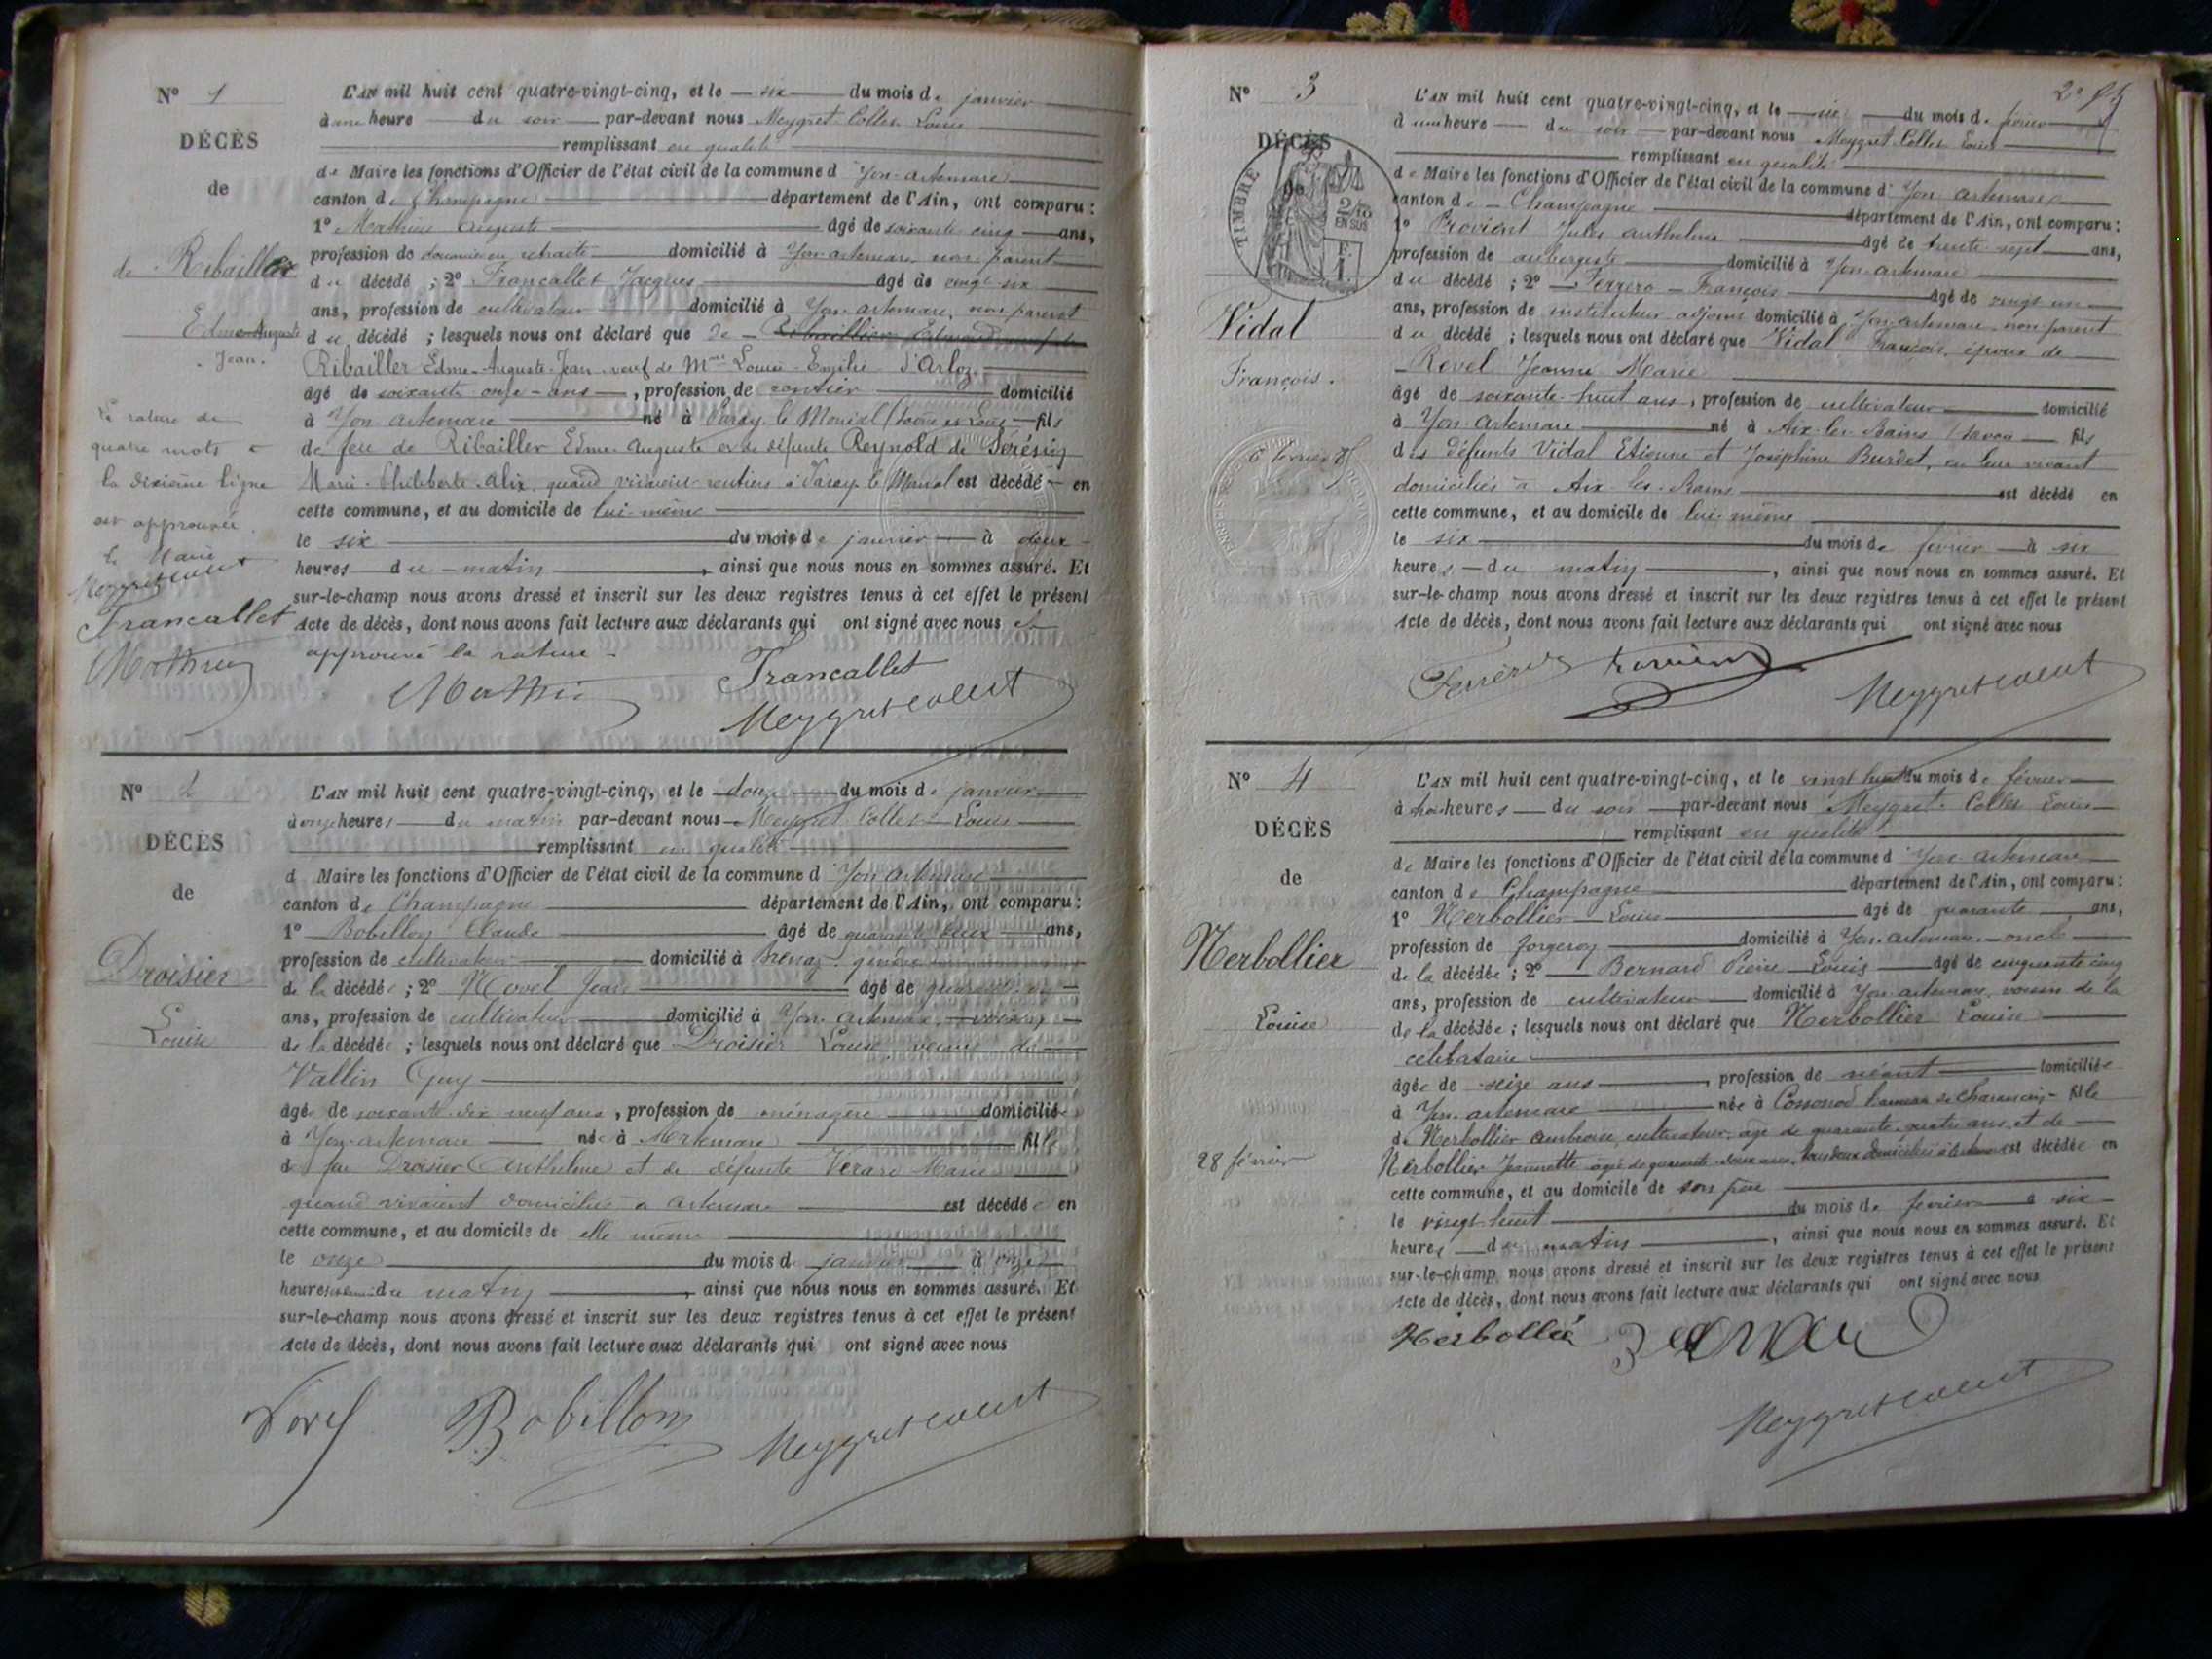 Nº 1
DÉCÈS
de
de Ribailler
Edme-Auguste
Jean.
La rature de
quatre mots à
la dixième ligne
est approuvée.
Le Maire
Meygret Collet
Francallet
Mathieu
L'AN mil huit cent quatre-vingt-cinq, et le six du mois de janvier
à une heure du soir par-devant nous Meygret-Collet Louis
remplissant en qualité
de Maire les fonctions d'Officier de l'état civil de la commune d'Yon-artemare
canton de Champagne département de l'Ain, ont comparu :
1º Mathieu Auguste âgé de soixante cinq ans,
profession de douanier en retraite domicilié à Yon-artemare, non parent
du décédé ; 2º Francallet Jacques âgé de vingt six
ans, profession de cultivateur domicilié à Yon-artemare, non parent
du décédé ; lesquels nous ont déclaré que de
Ribailler Edme-Auguste-Jean veuf de Mme Louise-Emilie d'Arloz
âgé de soixante onze ans, profession de rentier domicilié
à Yon-artemare né à Paray le Monial (Saône et Loire fils
de feu de Ribailler Edme Auguste et de défunte Reynold de Sérésin
Marie-Philiberte-Alix, quand vivaient rentiers à Paray le Monial est décédé en
cette commune, et au domicile de lui-même
le six du mois de janvier à deux
heures du matin, ainsi que nous nous en sommes assuré. Et
sur-le-champ nous avons dressé et inscrit sur les deux registres tenus à cet effet le présent
Acte de décès, dont nous avons fait lecture aux déclarants qui ont signé avec nous et
approuvé la rature
Mathieu Francallet
Meygret Collet
Nº 2
DÉCÈS
de
Droisier
Louise
L'AN mil huit cent quatre-vingt-cinq, et le douze du mois de janvier
à onze heures du matin par-devant nous Meygret-Collet Louis
remplissant en qualité
d Maire les fonctions d'Officier de l'état civil de la commune d'Yon artemare
canton de Champagne département de l'Ain, ont comparu :
1º Bobillon Claude âgé de quarante deux ans,
profession de cultivateur domicilié à Brénaz gendre
de la décédée ; 2º Novel Jean âgé de quarante
ans, profession de cultivateur domicilié à Yon-artemare, voisin
de la décédée ; lesquels nous ont déclaré que Droisier Louise, veuve de
Vallin Guy
âgée de soixante dix neuf ans, profession de ménagère domiciliée
à Yon-artemare née à Artemare fille
de feu Droisier Anthelme et de défunte Verard Marie
quand vivaient domiciliés à artemare est décédée en
cette commune, et au domicile de elle même
le onze du mois de janvier à onze
heures du matin, ainsi que nous nous en sommes assuré. Et
sur-le-champ nous avons dressé et inscrit sur les deux registres tenus à cet effet le présent
Acte de décès, dont nous avons fait lecture aux déclarants qui ont signé avec nous
Novel Bobillon Meygret Collet
2e
Nº 3
DÉCÈS
de
TIMBRE
2/10
EN SUS
Vidal
François.
6 février 85
L'AN mil huit cent quatre-vingt-cinq, et le six du mois de février
à une heure du soir par-devant nous Meygret Collet Louis
remplissant en qualité
de Maire les fonctions d'Officier de l'état civil de la commune d'Yon artemare
canton de Champagne département de l'Ain, ont comparu :
1º Jules anthelme âgé de trente sept ans,
profession de aubergiste domicilié à Yon-artemare
du décédé ; 2º Ferrero François âgé de vingt un
ans, profession de instituteur adjoint domicilié à Yon-artemare, non parent
du décédé ; lesquels nous ont déclaré que Vidal François, époux de
Revel Jeanne Marie
âgé de soixante-huit ans, profession de cultivateur domicilié
à Yon-artemare né à Aix-les-Bains (Savoie fils
des défunts Vidal Etienne et Joséphine Burdet, en leur vivant
domiciliés à Aix-les-Bains est décédé en
cette commune, et au domicile de lui-même
le six du mois de février à six
heures du matin, ainsi que nous nous en sommes assuré. Et
sur-le-champ nous avons dressé et inscrit sur les deux registres tenus à cet effet le présent
Acte de décès, dont nous avons fait lecture aux déclarants qui ont signé avec nous
Meygret Collet
Nº 4
DÉCÈS
de
Nerbollier
Louise
28 février
L'AN mil huit cent quatre-vingt-cinq, et le vingt huit du mois de février
à heures du soir par-devant nous Meygret-Collet Louis
remplissant en qualité
de Maire les fonctions d'Officier de l'état civil de la commune d'Yon-artemare
canton de Champagne département de l'Ain, ont comparu :
1º Nerbollier Louis âgé de quarante ans,
profession de forgeron domicilié à Yon-artemare, oncle
de la décédée ; 2º Bernard Pierre Louis âgé de cinquante cinq
ans, profession de cultivateur domicilié à Yon-artemare, voisin de la
de la décédée ; lesquels nous ont déclaré que Nerbollier Louise
célibataire
âgée de seize ans, profession de néant domiciliée
à Yon-artemare née à hameau de Charancin fille
de Nerbollier ambroise, cultivateur, âgé de quarante quatre ans, et de
Nerbollier Jeannette âgée de quarante deux ans, tous deux domiciliés à est décédée en
cette commune, et au domicile de son père
le vingt-huit du mois de février à six
heures du matin, ainsi que nous nous en sommes assuré. Et
sur-le-champ nous avons dressé et inscrit sur les deux registres tenus à cet effet le présent
Acte de décès, dont nous avons fait lecture aux déclarants qui ont signé avec nous
Nerbollié Bernard
Meygret Collet